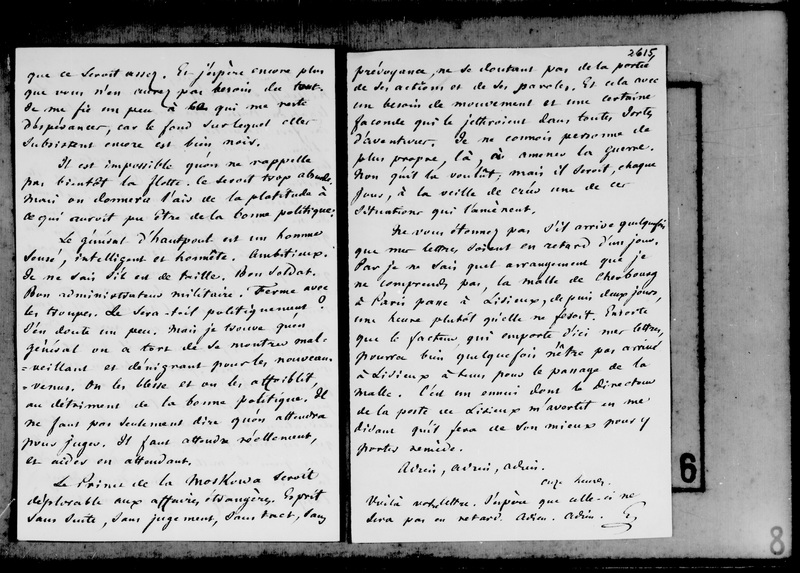 que ce seroit assez. Et j'espère encore plus
que vous n'en aurez pas besoin du tout.
Je me fie un peu à ce qui me reste
d'espérances, car le fond sur lequel elles
subsistent encore est bien noir.
Il est impossible qu'on ne rappelle
pas bientôt la flotte. Ce seroit trop absurde.
Mais on donnera l'air de la platitude à
ce qui auroit pu être de la bonne politique.
Le général d'hautpoul est un homme
sensé, intelligent et honnête. Ambitieux.
Je ne sais s'il est de taille. Bon soldat.
Bon administrateur militaire. Ferme avec
les troupes. Le sera-t-il politiquement ?
J'en doute un peu. Mais je trouve qu'en
général on a tort de se montrer mal-
=veillant et dénigrant pour les nouveaux
=venus. On les blesse et on les affoiblit,
au détriment de la bonne politique. Il
ne faut pas seulement dire qu'on attendra
pour juger. Il faut attendre réellement,
et aider en attendant.
Le Prince de la Moskowa seroit
déplorable aux affaires étrangères. Esprit
sans suite, sans jugement, sans tact, sans
2615
prévoyance, ne se doutant pas de la portée
de ses actions et de ses paroles. Et cela avec
un besoin de mouvement et une certaine
faconde qui le jetteroient dans toutes sortes
d'aventures. Je ne connois personne de
plus propre, là, à amener la guerre.
Non qu'il la voulût, mais il seroit, chaque
jour, à la veille de créer une de ces
situations qui l'amènent.
Ne vous étonnez pas s'il arrive quelquefois
que mes lettres soient en retard d'un jour.
Par je ne sais quel arrangement que je
ne comprends pas, la malle de Cherbourg
à Paris passe à Lisieux, depuis deux jours,
une heure plutôt qu'elle ne fesoit. Ensorte
que le facteur, qui emporte d'ici mes lettres,
pourra bien quelquefois n'être pas arrivé
à Lisieux à tems pour le passage de la
malle. C'est un ennui dont le Directeur
de la poste de Lisieux m'avertit en me
disant qu'il fera de son mieux pour y
porter remède.
Adieu, adieu, adieu.
onze heures.
Voilà votre lettre. J'espère que celle-ci ne
sera pas en retard. Adieu. Adieu. G.
6
8